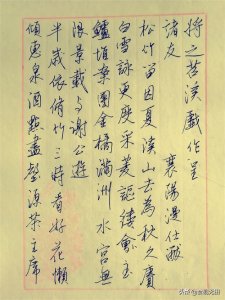 将之苕溪戏作呈
诸友 襄阳漫仕黻
松竹留因夏溪山去为秋久赓
白雪咏更度采菱讴缕会玉
鲈堆案团金橘满洲水宫无
限景载与谢公游
半岁依修竹三时看好花懒
倾惠泉酒点尽壑源茶主席